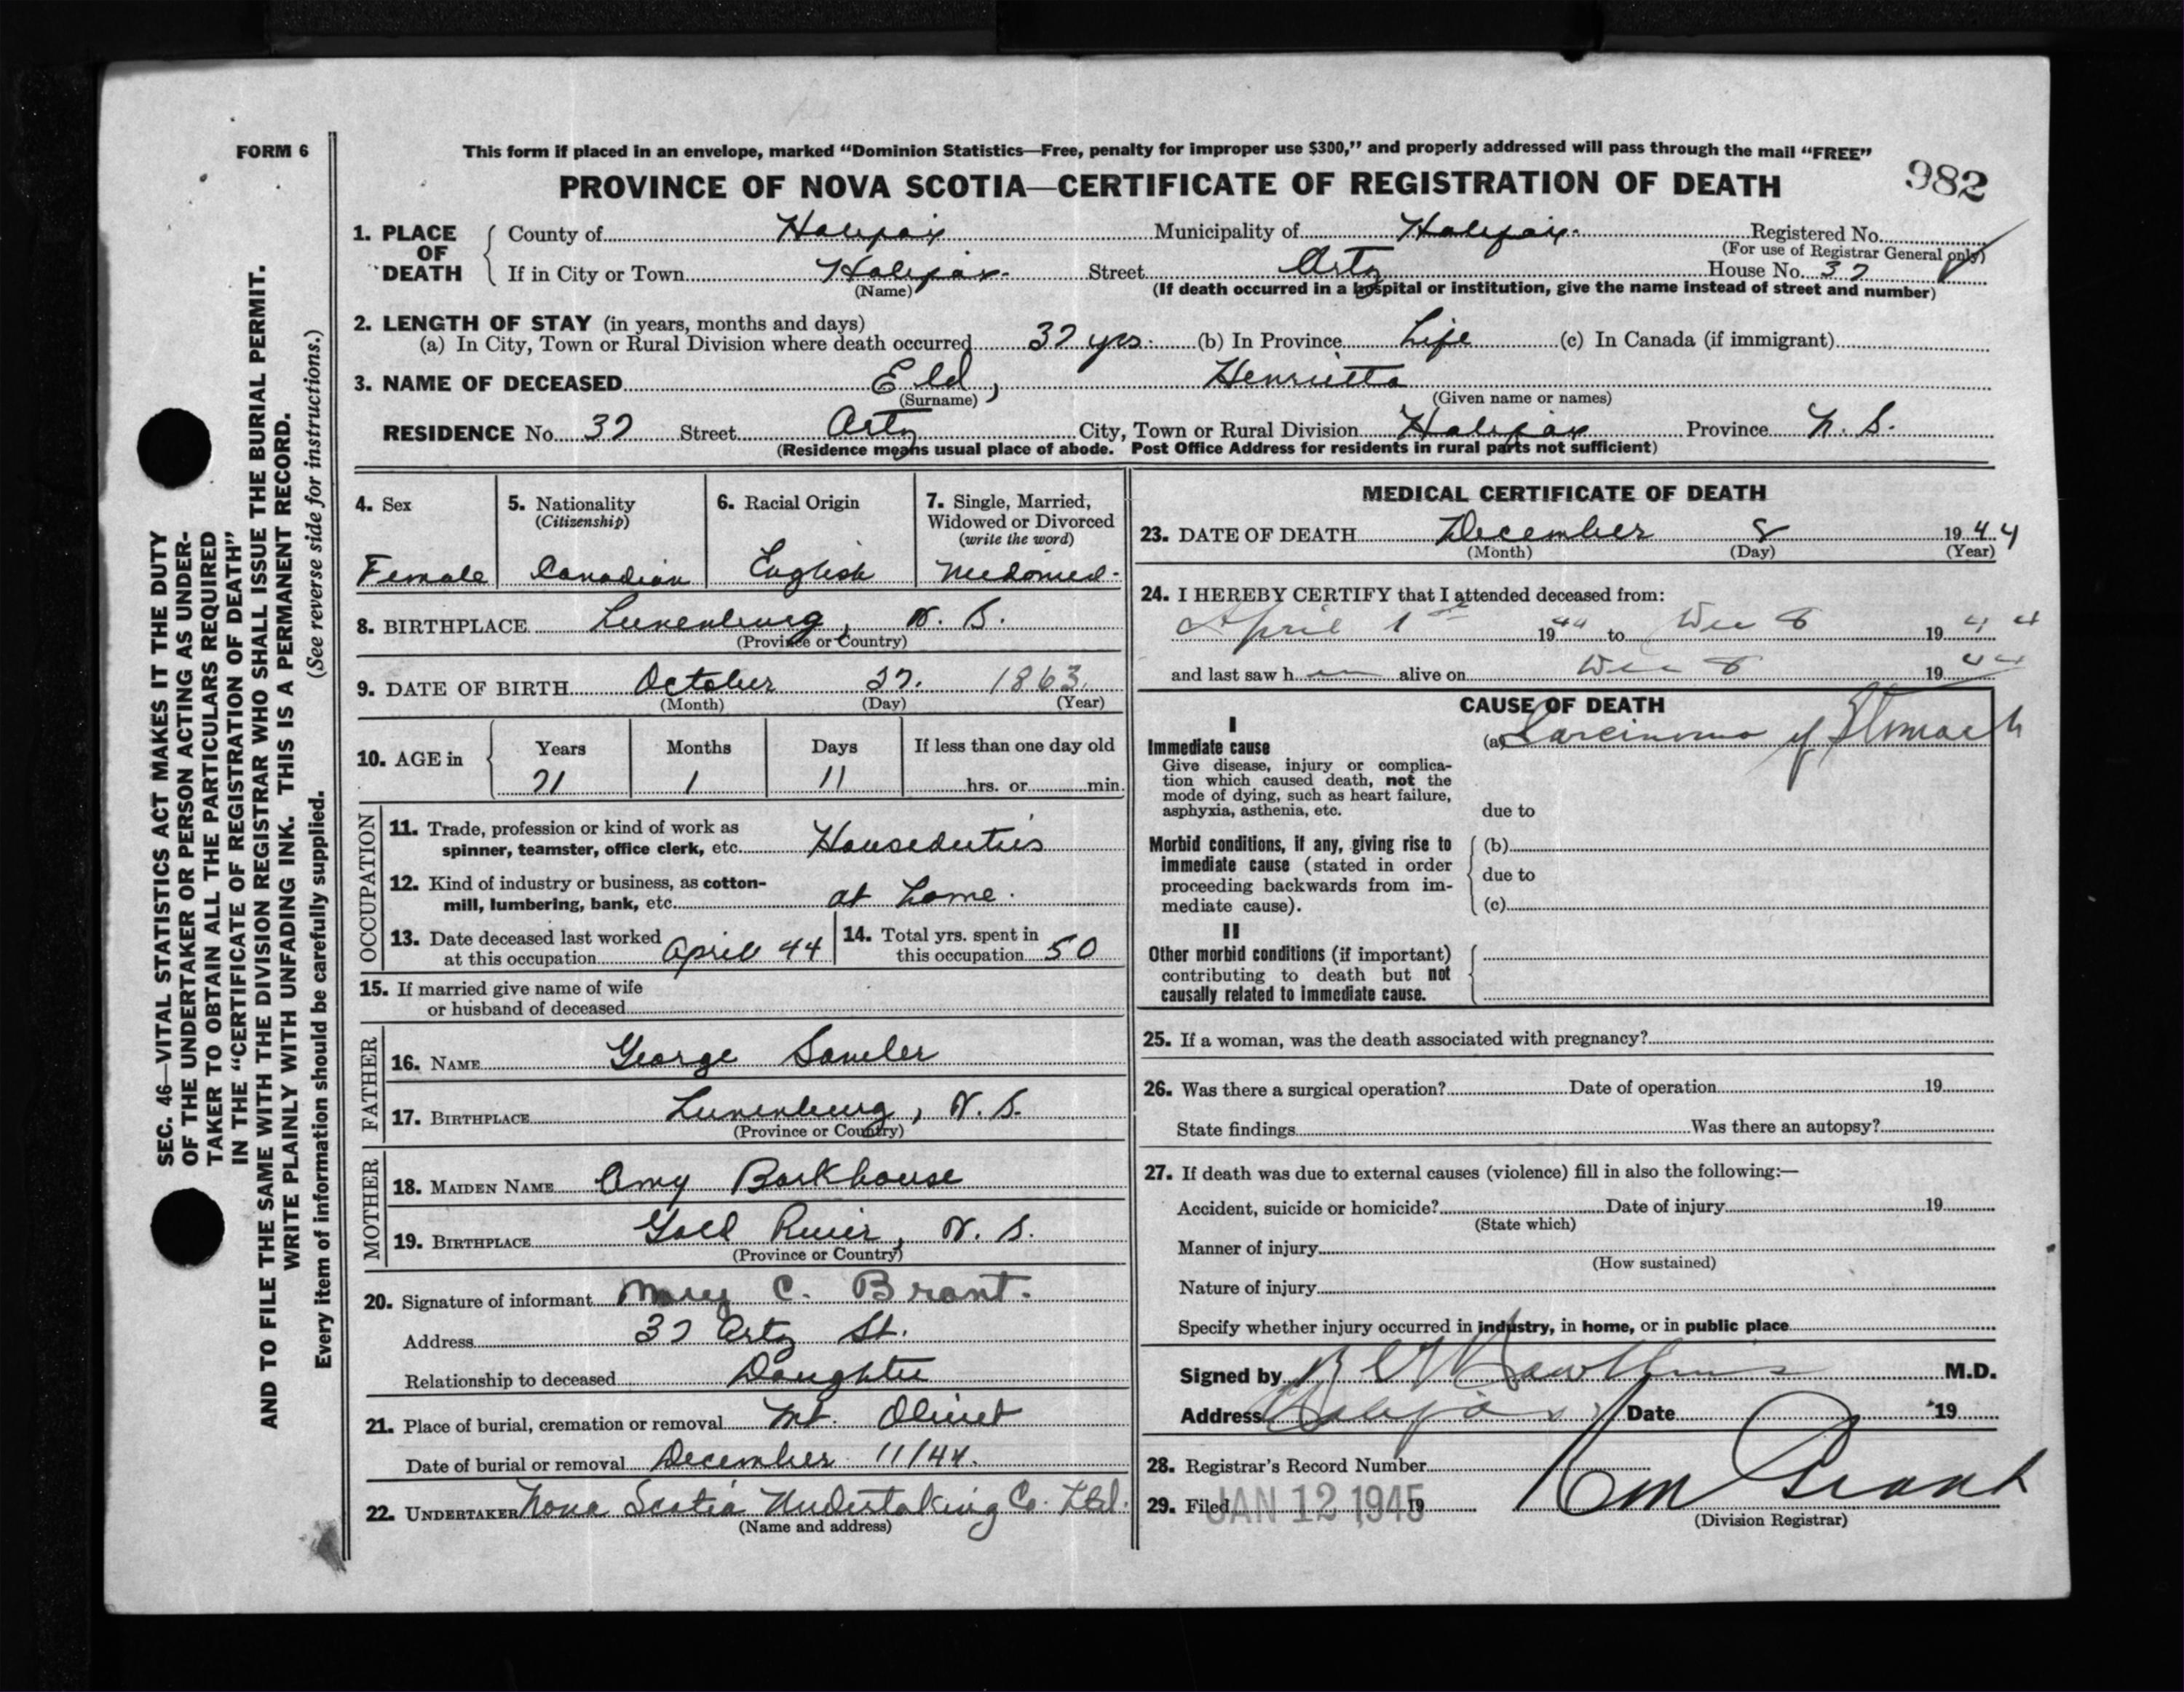 FORM 6
This form if placed in an envelope, marked “Dominion Statistics—Free, penalty for improper use $300,” and properly addressed will pass through the mail “FREE”
PROVINCE OF NOVA SCOTIA—CERTIFICATE OF REGISTRATION OF DEATH
982
1. PLACE OF DEATH
County of Halifax Municipality of Halifax. Registered No.
(For use of Registrar General only)
If in City or Town Halifax. Street Artz House No. 37
(Name) (If death occurred in a hospital or institution, give the name instead of street and number)
2. LENGTH OF STAY (in years, months and days)
(a) In City, Town or Rural Division where death occurred 37 yrs. (b) In Province Life (c) In Canada (if immigrant)
3. NAME OF DECEASED Eld, Henrietta
(Surname) (Given name or names)
RESIDENCE No. 37 Street Artz City, Town or Rural Division Halifax Province N. S.
(Residence means usual place of abode. Post Office Address for residents in rural parts not sufficient)
4. Sex
Female
5. Nationality
(Citizenship)
Canadian
6. Racial Origin
English
7. Single, Married,
Widowed or Divorced
(write the word)
Widowed.
8. BIRTHPLACE Lunenburg, N. S.
(Province or Country)
9. DATE OF BIRTH October 27. 1863
(Month) (Day) (Year)
10. AGE in
Years Months Days If less than one day old
71 1 11 hrs. or min.
OCCUPATION
11. Trade, profession or kind of work as
spinner, teamster, office clerk, etc. Houseduties
12. Kind of industry or business, as cotton-
mill, lumbering, bank, etc. at home.
13. Date deceased last worked
at this occupation April 44
14. Total yrs. spent in
this occupation 50
15. If married give name of wife
or husband of deceased
FATHER
16. NAME George Sawler
17. BIRTHPLACE Lunenburg, N. S.
(Province or Country)
MOTHER
18. MAIDEN NAME Amy Barkhouse
19. BIRTHPLACE Gold River, N. S.
(Province or Country)
20. Signature of informant Mary C. Brant.
Address 37 Artz St.
Relationship to deceased Daughter
21. Place of burial, cremation or removal Mt. Olivet
Date of burial or removal December 11/44.
22. UNDERTAKER Nova Scotia Undertaking Co. Ltd.
(Name and address)
MEDICAL CERTIFICATE OF DEATH
23. DATE OF DEATH December 8 1944
(Month) (Day) (Year)
24. I HEREBY CERTIFY that I attended deceased from:
April 1st 1944 to Dec 8 1944
and last saw h er alive on Dec 8 1944
CAUSE OF DEATH
I
Immediate cause
Give disease, injury or complica-
tion which caused death, not the
mode of dying, such as heart failure,
asphyxia, asthenia, etc.
(a) Carcinoma of Stomach
due to
Morbid conditions, if any, giving rise to
immediate cause (stated in order
proceeding backwards from im-
mediate cause).
(b)
due to
(c)
II
Other morbid conditions (if important)
contributing to death but not
causally related to immediate cause.
25. If a woman, was the death associated with pregnancy?
26. Was there a surgical operation? Date of operation 19
State findings Was there an autopsy?
27. If death was due to external causes (violence) fill in also the following:—
Accident, suicide or homicide? Date of injury 19
(State which)
Manner of injury
(How sustained)
Nature of injury
Specify whether injury occurred in industry, in home, or in public place
Signed by M.D.
Address Halifax Date 19
28. Registrar's Record Number
29. Filed JAN 12 1945 19
(Division Registrar)
SEC. 46—VITAL STATISTICS ACT MAKES IT THE DUTY
OF THE UNDERTAKER OR PERSON ACTING AS UNDER-
TAKER TO OBTAIN ALL THE PARTICULARS REQUIRED
IN THE “CERTIFICATE OF REGISTRATION OF DEATH”
AND TO FILE THE SAME WITH THE DIVISION REGISTRAR WHO SHALL ISSUE THE BURIAL PERMIT.
WRITE PLAINLY WITH UNFADING INK. THIS IS A PERMANENT RECORD.
Every item of information should be carefully supplied. (See reverse side for instructions.)